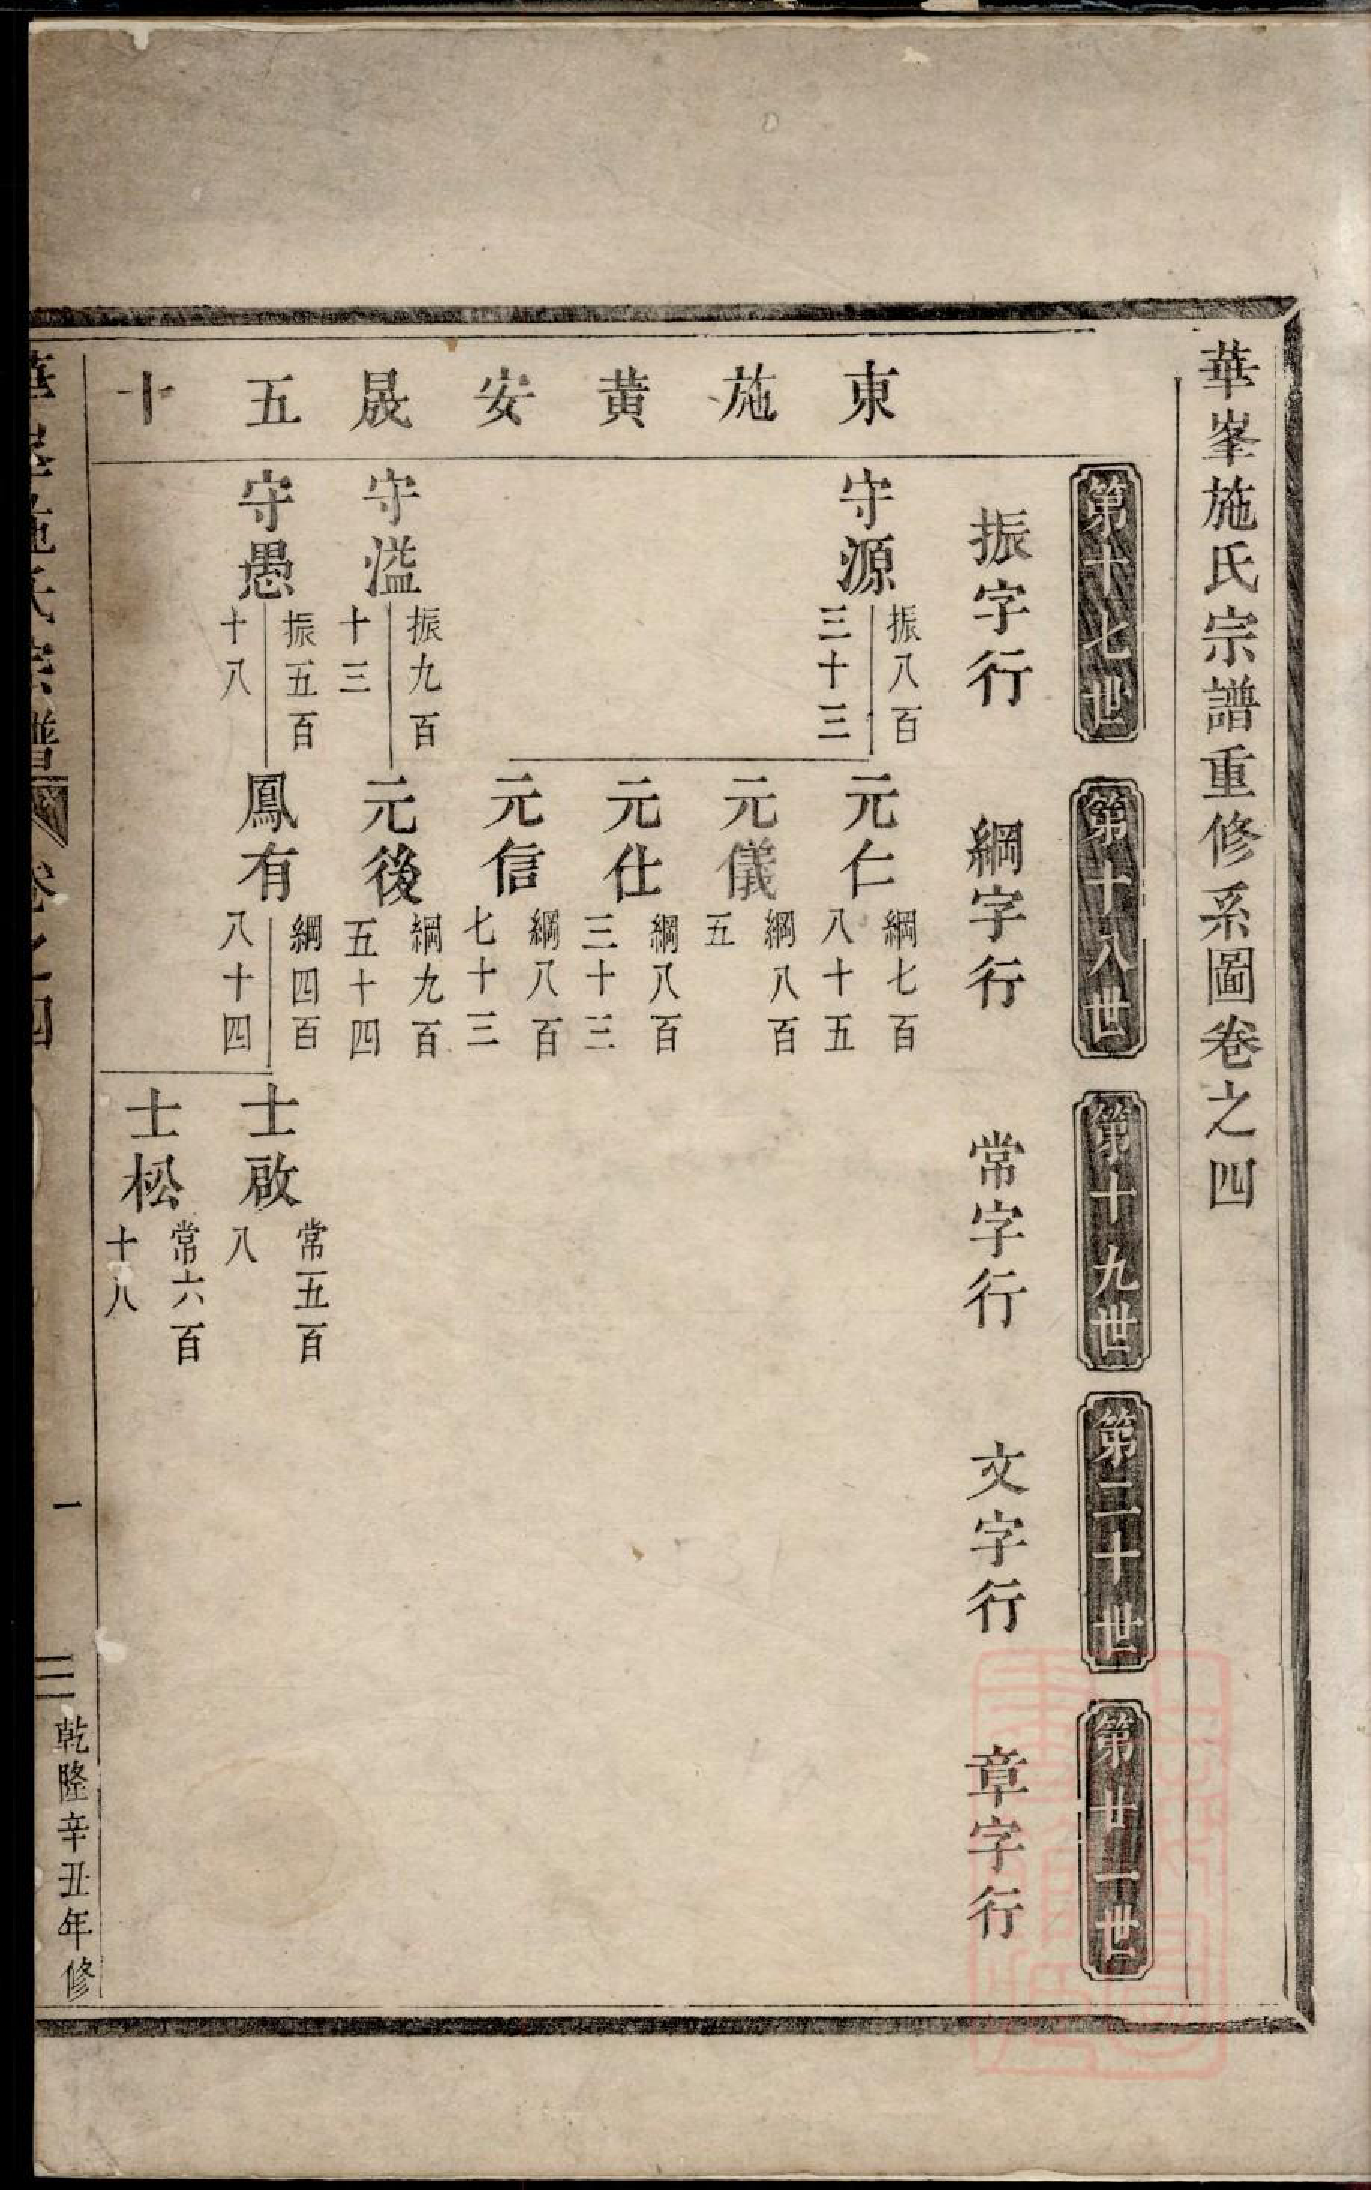 華峯施氏宗譜重修系圖卷之四
第十七世
第十八世
第十九世
第二十世
第廿一世
振字行
綱字行
常字行
文字行
章字行
東施黄安晟五十
守源
振八百
三十三
元仁
綱七百
八十五
元儀
綱八百
五
元仕
綱八百
三十三
元信
綱八百
七十三
守溢
振九百
十三
元後
綱九百
五十四
守愚
振五百
十八
鳳有
綱四百
八十四
士啟
常五百
八
士松
常六百
十八
華峯施氏宗譜
卷之四
一
三
乾隆辛丑年修